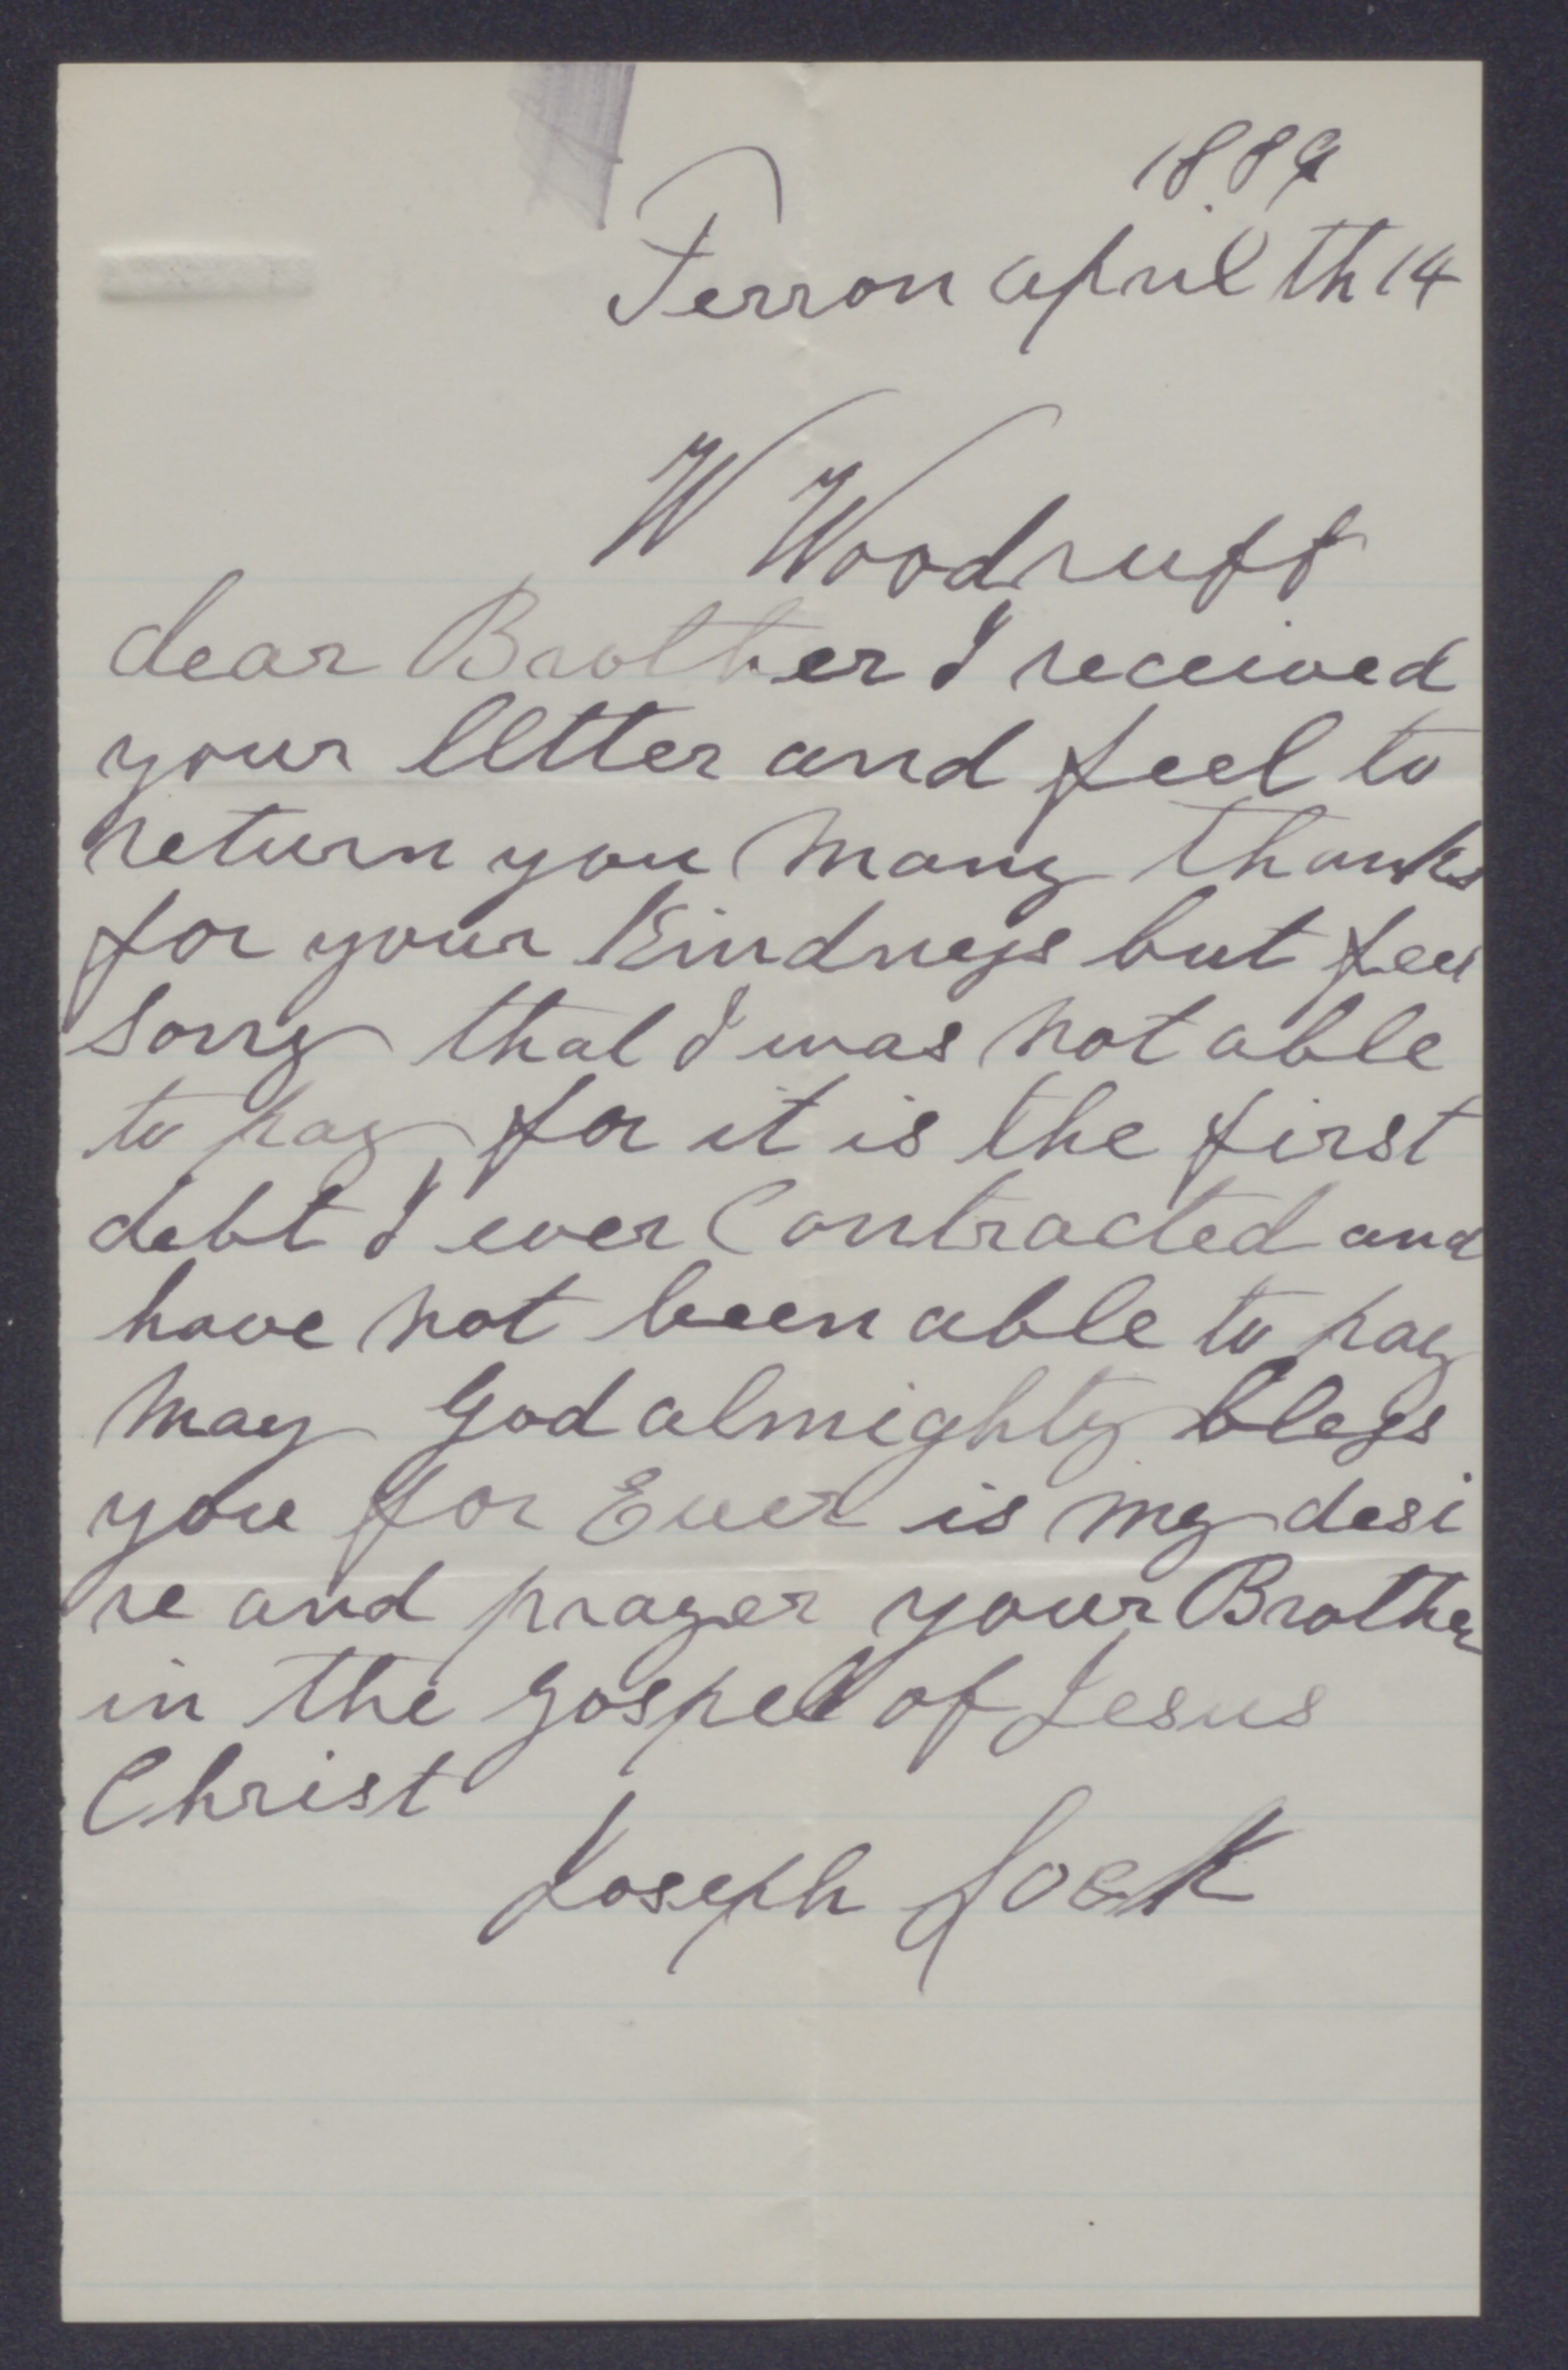 1889
Ferron april th 14
W Woodruff
dear Brother I received
your letter and feel to
return you many thanks
for your Kindness but feel
sorry that I was not able
to pay for it is the first
debt I ever Contracted and
have not been able to pay
may God almighty bless
you for Ever is my desi
re and prayer your Brother
in the gospel of Jesus
Christ
Joseph Lock